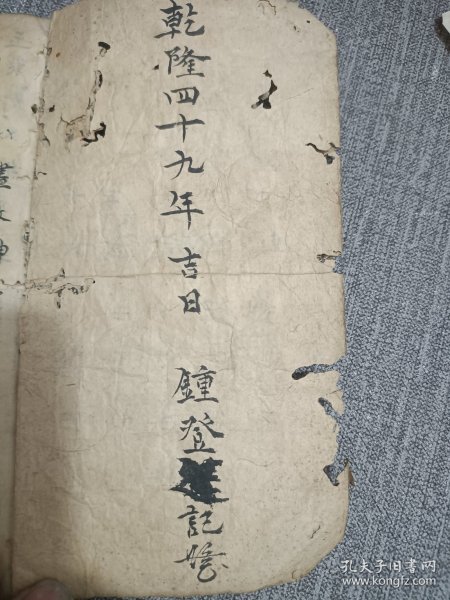 乾隆四十九年吉日 鍾登記
孔夫子旧书网
www.kongfz.com